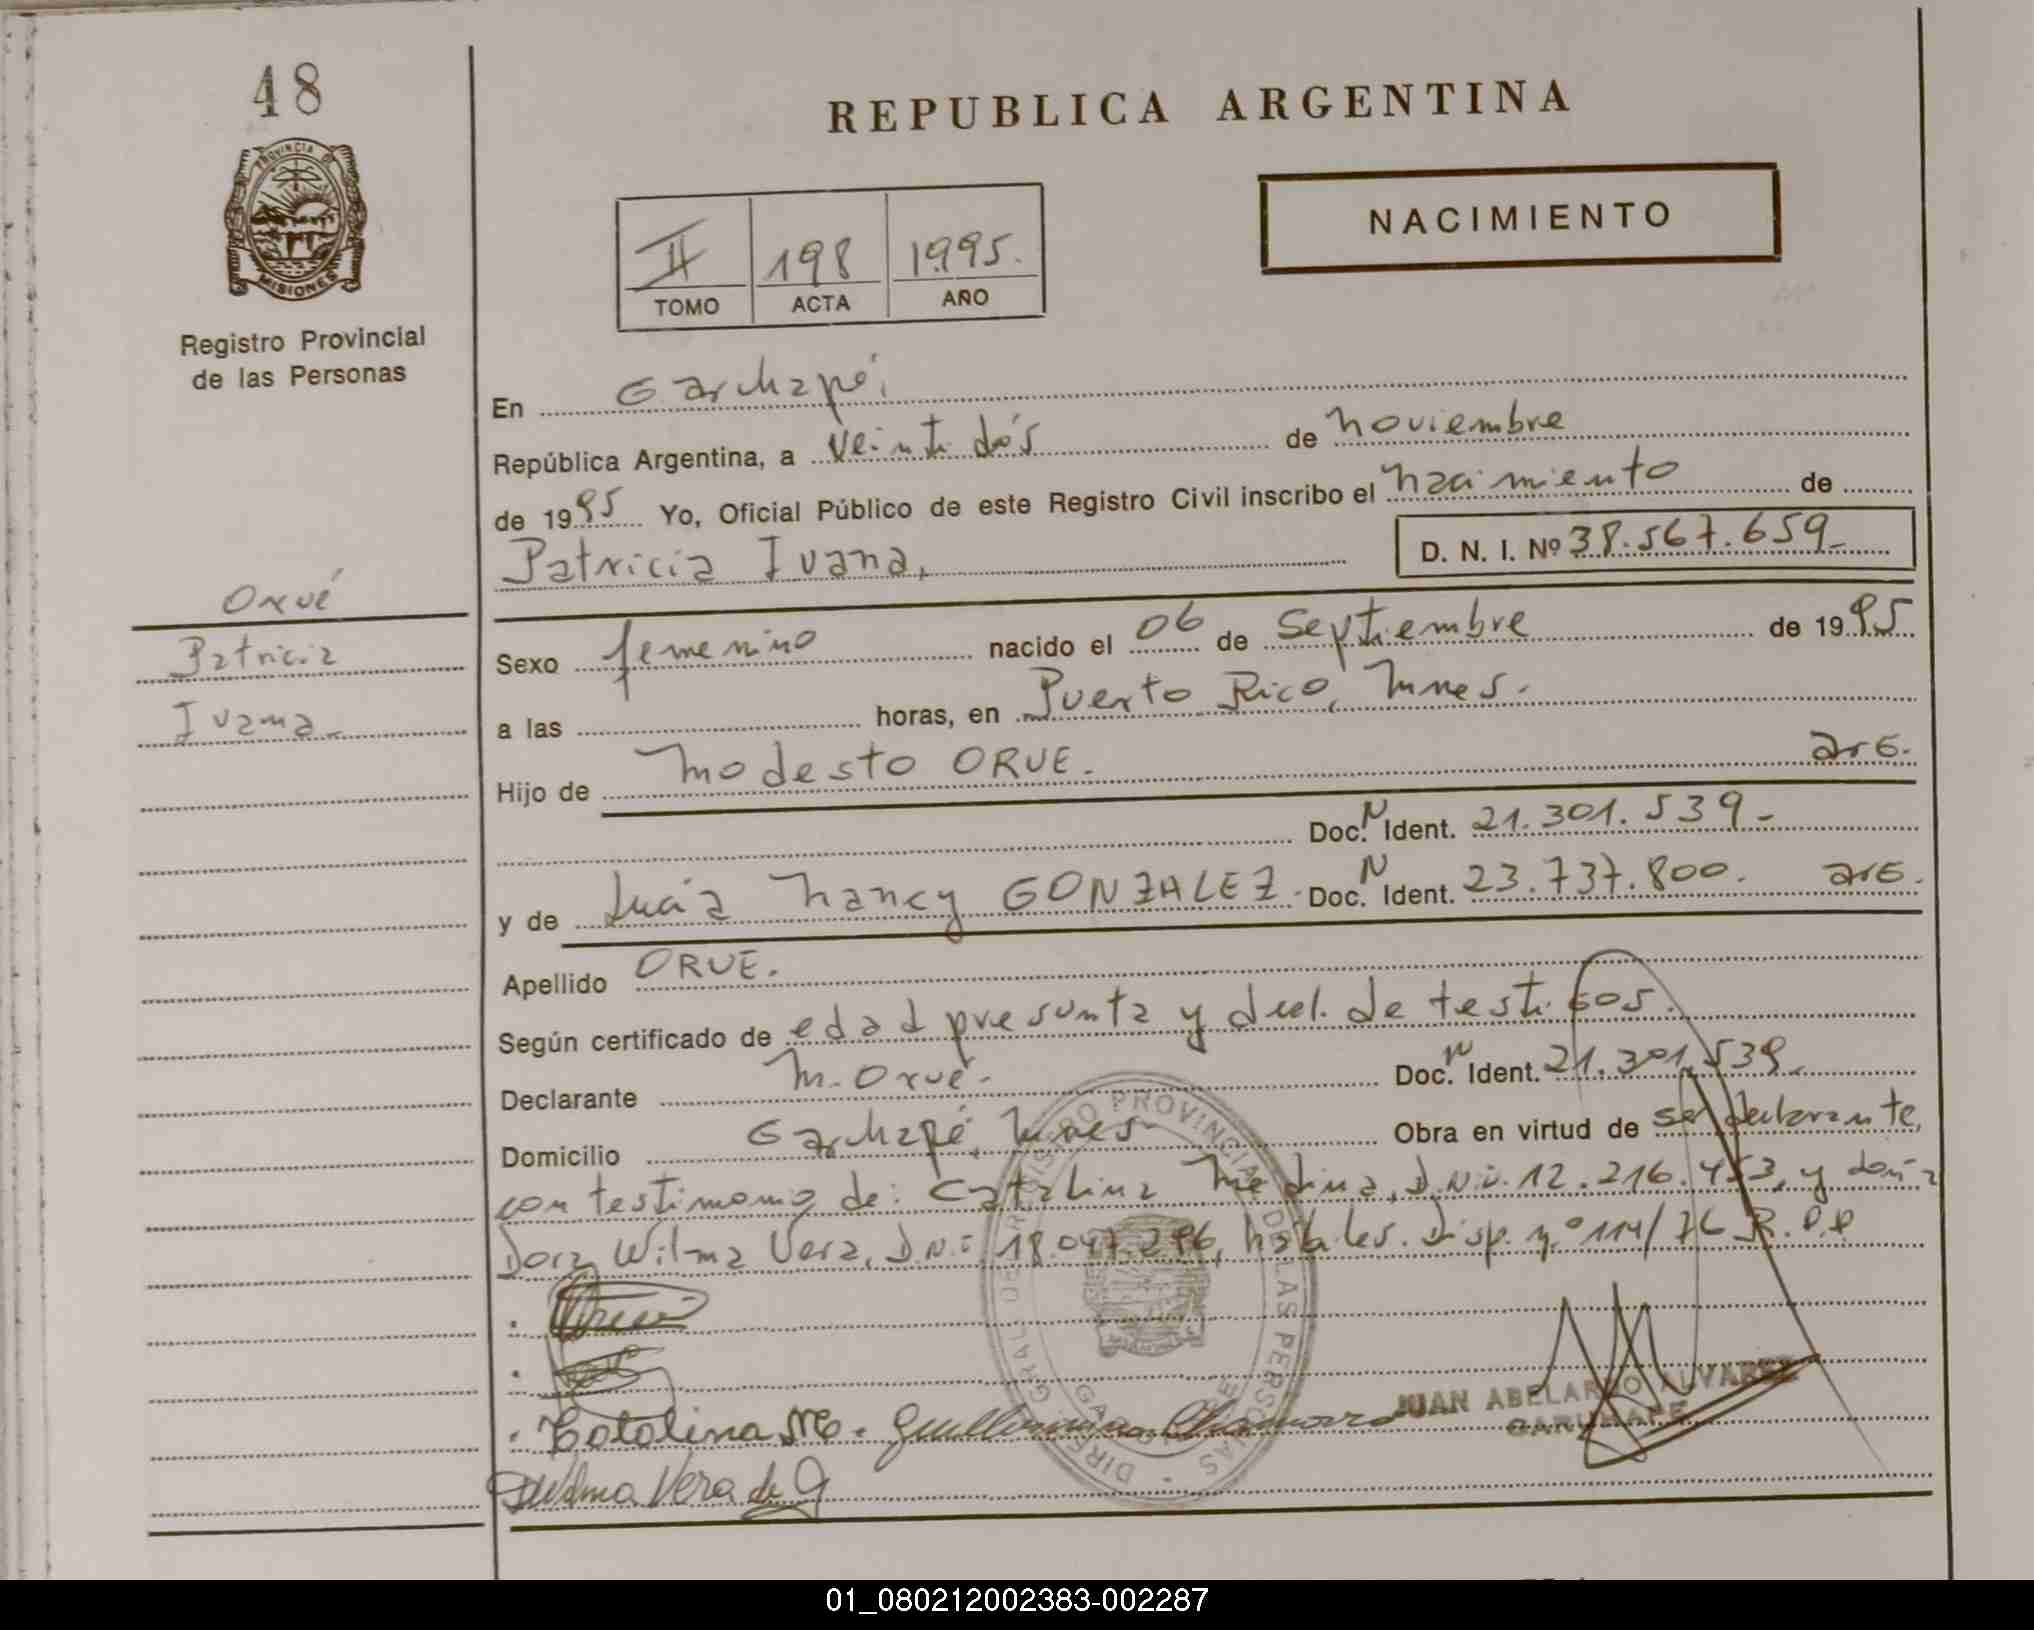 48
PROVINCIA DE
MISIONES
Registro Provincial
de las Personas
Orué
Patricia
Ivana.-
REPUBLICA ARGENTINA
NACIMIENTO
II 198 1995.
TOMO ACTA AÑO
En Garuhapé,
República Argentina, a Veinti dós de noviembre
de 1995 Yo, Oficial Público de este Registro Civil inscribo el nacimiento de
Patricia Ivana, D. N. I. Nº 38.567.659.-
Sexo femenino nacido el 06 de Septiembre de 1995
a las horas, en Puerto Rico, Mnes.
Hijo de Modesto ORUE. arG.
Doc. N Ident. 21.301.539.-
y de Lucía Nancy GONZALEZ. Doc. N Ident. 23.737.800. arG.
Apellido ORUE.
Según certificado de edad presunta y decl. de testigos.
Declarante M. Orué.- Doc. N Ident. 21.301.539.-
Domicilio Garuhapé, Mnes- Obra en virtud de ser declarante,
con testimonio de: Catalina Medina, D.N.I. 12.216.453, y doña
Dora Wilma Vera, D.N.I. 18.047.296, hábiles. Disp. n.º 114/76 R.P.P.
Orué
Catalina M. Guillermina Chamorro
JUAN ABELARDO ALVAREZ
GARUHAPE
Wilma Vera de G
DIREC. GRAL. DEL REGISTRO PROVINCIAL DE LAS PERSONAS
01_080212002383-002287